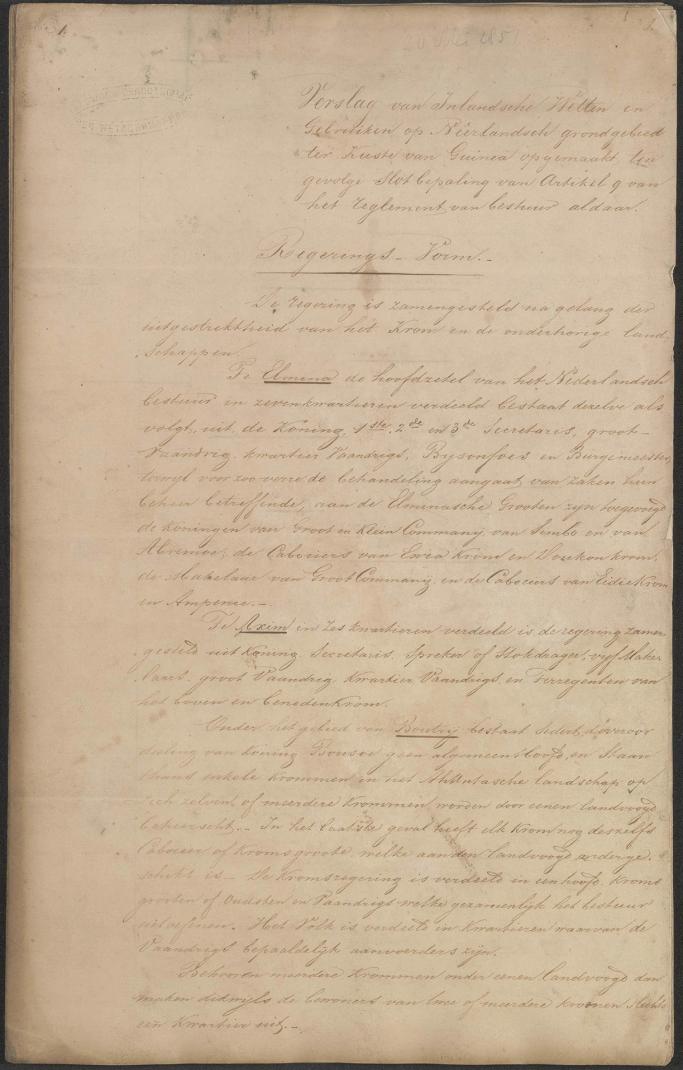 1.
20 Mei 1851
Verslag van Inlandsche Wetten en
Gebruiken op Nederlandsch grondgebied
ter Kuste van Guinea opgemaakt ten
gevolge Slotbepaling van Artikel 9 van
het Reglement van bestuur aldaar.
Regerings-Vorm.-
De regering is zamengesteld na gelang der
uitgestrektheid van het Krom en de onderhorige land-
schappen
Te Elmina de hoofdzetel van het Nederlandsch
bestuur in zeven kwartieren verdeeld bestaat dezelve als
volgt, uit de Koning, 1ste, 2de en 3de Secretaris, groot-
Vaandrig, kwartier Vaandrigs, en Burgemeesters,
terwyl voor zoo verre de behandeling aangaat van zaken hun
beheer betreffende, aan de Elminasche Grooten zyn toegevoegd
de koningen van Groot en Klein Commany, van en van
de Cabociers van Krom en krom,
de Makelaar van Groot Commany, en de Cabociers van Krom
en Ampenie.-
Te Axim in zes kwartieren verdeeld is de regering zamen-
gesteld uit Koning, Secretaris, Spreker of Stokdrager, vyf Make-
laars, groot Vaandrig, kwartier Vaandrigs, en Terregenten van
het boven en benedenkrom.
Onder het gebied van Boutry bestaat sedert de veroor-
deeling van koning Bonsoe geen algemeen hoofd, en staan
thans enkele krommen in het Ahantasche landschap op
zich zelven, of meerdere krommen worden door eenen landvoogd
beheerscht.- In het laatste geval heeft elk krom nog deszelfs
Cabocier of kromsgroote, welke aan den landvoogd onderge-
schikt is.- De kromsregering is verdeeld in een hoofd, kroms
grooten of Oudsten en Vaandrigs welke gezamenlyk het bestuur
uitoefenen. Het Volk is verdeeld in kwartieren waarvan de
Vaandrigs bepaaldelyk aanvoerders zyn.
Behooren meerdere krommen onder eenen landvoogd dan
maken dikwyls de bewoners van twee of meerdere kromen slechts
een kwartier uit.-